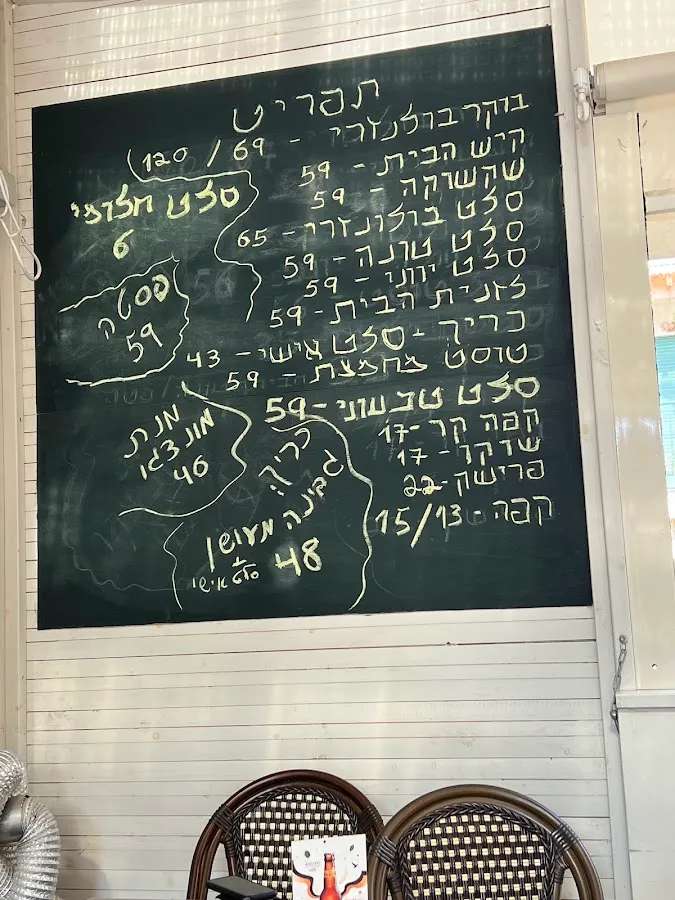 תפריט
בוקר בולונזרי - 69 / 120
קיש הבית - 59
שקשוקה - 59
סלט בולונזרי - 65
סלט טונה - 59
סלט יווני - 59
לזניית הבית - 59
כריך + סלט אישי - 43
טוסט מחמצת - 59
סלט טבעוני - 59
קפה קר - 17
שוקו קר - 17
פרישק - 22
קפה - 15/13
סלט חלומי
6
פסטה
59
מנת
מונצגו
46
כריך:
גבינה מעושן
+
סלט אישי
48